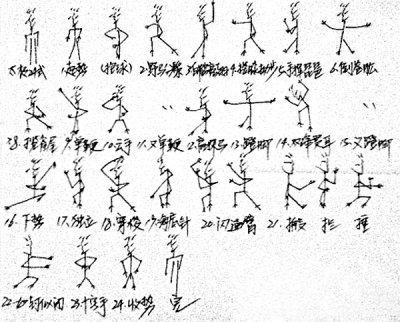 太极拳式 1.起势 (抱球) 2.野马分鬃 3.白鹤亮翅 4.搂膝拗步 5.手挥琵琶 6.倒卷肱
7.8.揽雀尾 9.单鞭 10.云手 11.又单鞭 12.高探马 13.蹬脚 14.双峰贯耳 15.又蹬脚
16.下势 17.独立 18.穿梭 19.海底针 20.闪通臂 21.搬 拦 捶
22.如封似闭 23.十字手 24.收势 完